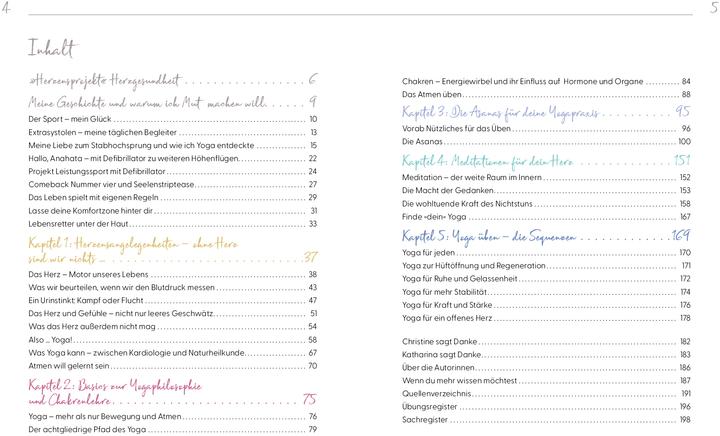 4
5
Inhalt
»Herzensprojekt« Herzgesundheit . . . . . . . . . . . . . . . . . 6
Meine Geschichte und warum ich Mut machen will. . . . . . 9
Der Sport – mein Glück ........ 10
Extrasystolen – meine täglichen Begleiter ........ 13
Meine Liebe zum Stabhochsprung und wie ich Yoga entdeckte ........ 15
Hallo, Anahata – mit Defibrillator zu weiteren Höhenflügen ........ 22
Projekt Leistungssport mit Defibrillator ........ 24
Comeback Nummer vier und Seelenstriptease ........ 27
Das Leben spielt mit eigenen Regeln ........ 29
Lasse deine Komfortzone hinter dir ........ 31
Lebensretter unter der Haut ........ 33
Kapitel 1: Herzensangelegenheiten – ohne Herz
sind wir nichts ... . . . . . . . . . . . . . . . . . 37
Das Herz – Motor unseres Lebens ........ 38
Was wir beurteilen, wenn wir den Blutdruck messen ........ 43
Ein Urinstinkt: Kampf oder Flucht ........ 47
Das Herz und Gefühle – nicht nur leeres Geschwätz ........ 51
Was das Herz außerdem nicht mag ........ 54
Also ... Yoga! ........ 58
Was Yoga kann – zwischen Kardiologie und Naturheilkunde ........ 67
Atmen will gelernt sein ........ 70
Kapitel 2: Basics zur Yogaphilosophie
und Chakrenlehre . . . . . . . . . . . . . . . . . 75
Yoga – mehr als nur Bewegung und Atmen ........ 76
Der achtgliedrige Pfad des Yoga ........ 79
Chakren – Energiewirbel und ihr Einfluss auf Hormone und Organe ........ 84
Das Atmen üben ........ 88
Kapitel 3: Die Asanas für deine Yogapraxis . . . . . . . . 95
Vorab Nützliches für das Üben ........ 96
Die Asanas ........ 100
Kapitel 4: Meditationen für dein Herz . . . . . . . . . . 151
Meditation – der weite Raum im Innern ........ 152
Die Macht der Gedanken ........ 153
Die wohltuende Kraft des Nichtstuns ........ 158
Finde »dein« Yoga ........ 167
Kapitel 5: Yoga üben – die Sequenzen . . . . . . . . . . 169
Yoga für jeden ........ 170
Yoga zur Hüftöffnung und Regeneration ........ 171
Yoga für Ruhe und Gelassenheit ........ 172
Yoga für mehr Stabilität ........ 174
Yoga für Kraft und Stärke ........ 176
Yoga für ein offenes Herz ........ 178
Christine sagt Danke ........ 182
Katharina sagt Danke ........ 183
Über die Autorinnen ........ 186
Wenn du mehr wissen möchtest ........ 187
Quellenverzeichnis ........ 191
Übungsregister ........ 196
Sachregister ........ 198